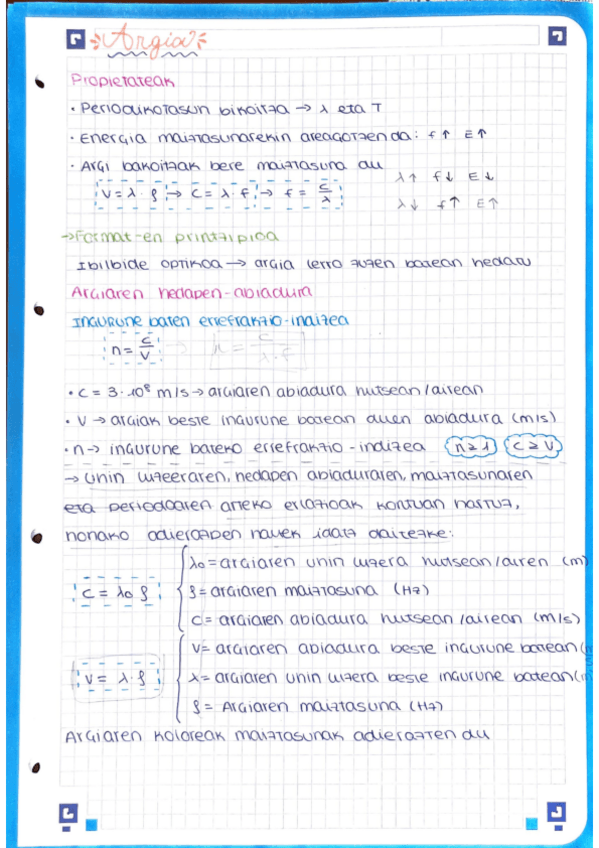 Argia
Propietateak
· Periodikotasun bikoitza → λ eta T
· Energia maiztasunarekin areagotzen da: f↑ E↑
· Argi bakoitzak bere maiztasuna du
v = λ · f → c = λ · f → f = c/λ
λ↑ f↓ E↓
λ↓ f↑ E↑
→ Format-en printzipioa
Ibilbide optikoa → argia lerro zuzen batean hedatu
Argiaren hedapen-abiadura
Ingurune baten errefrakzio-indizea
n = c/v → n = c/λ·f
· c = 3·10⁸ m/s → argiaren abiadura hutsean/airean
· v → argiak beste ingurune batean duen abiadura (m/s)
· n → ingurune bateko errefrakzio-indizea n≥1 c≥v
→ uhin luzeeraren, hedapen abiaduraren, maiztasunaren
eta periodoaren arteko erlazioak kontuan hartuz,
honako adierazpen hauek idatz daitezke:
c = λ₀ f
λ₀ = argiaren uhin luzera hutsean/airen (m)
f = argiaren maiztasuna (Hz)
c = argiaren abiadura hutsean/airean (m/s)
v = λ · f
v = argiaren abiadura beste ingurune batean (m
λ = argiaren uhin luzera beste ingurune batean (m
f = Argiaren maiztasuna (Hz)
Argiaren koloreak maiztasunak adierazten du